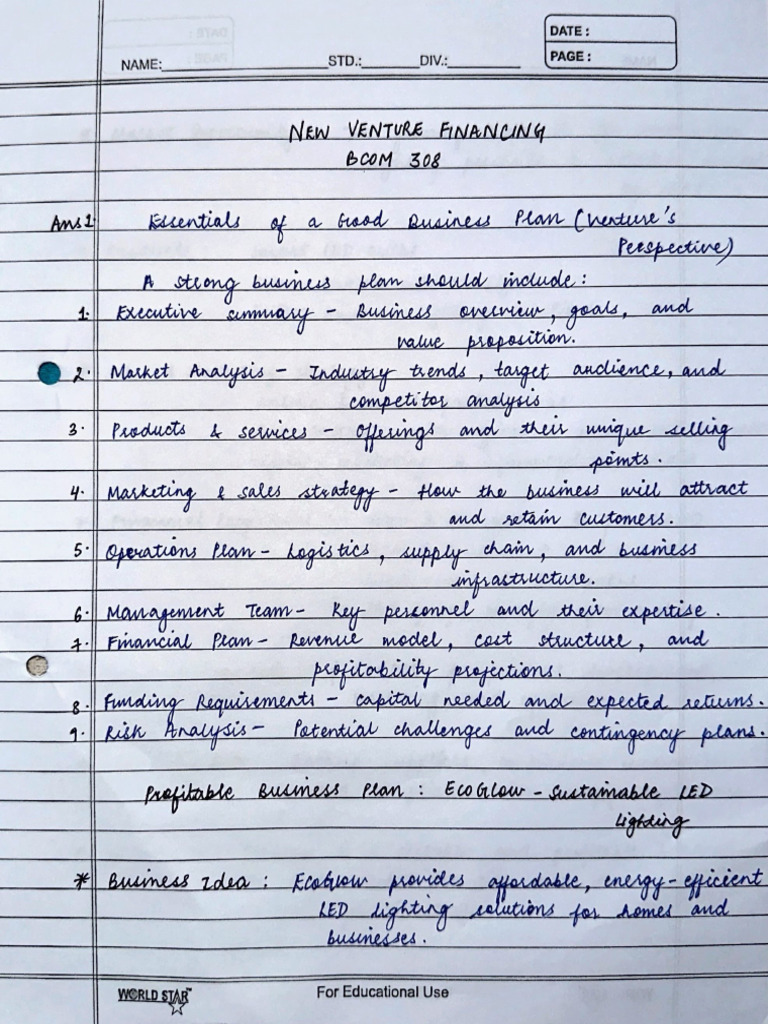 DATE :
PAGE :
NAME: STD.: DIV.:
NEW VENTURE FINANCING
BCOM 308
Ans 1 Essentials of a Good Business Plan (Venture's
Perspective)
A strong business plan should include :
1. Executive summary - Business overview, goals, and
value proposition.
2. Market Analysis - Industry trends, target audience, and
competitor analysis
3. Products & services - Offerings and their unique selling
points.
4. Marketing & sales strategy - How the business will attract
and retain customers.
5. Operations Plan - Logistics, supply chain, and business
infrastructure.
6. Management Team - Key personnel and their expertise.
7. Financial Plan - Revenue model, cost structure, and
profitability projections.
8. Funding Requirements - capital needed and expected returns.
9. Risk Analysis - Potential challenges and contingency plans.
Profitable Business Plan : EcoGlow - Sustainable LED
Lighting
* Business Idea : EcoGlow provides affordable, energy-efficient
LED lighting solutions for homes and
businesses.
WORLD STAR™
For Educational Use